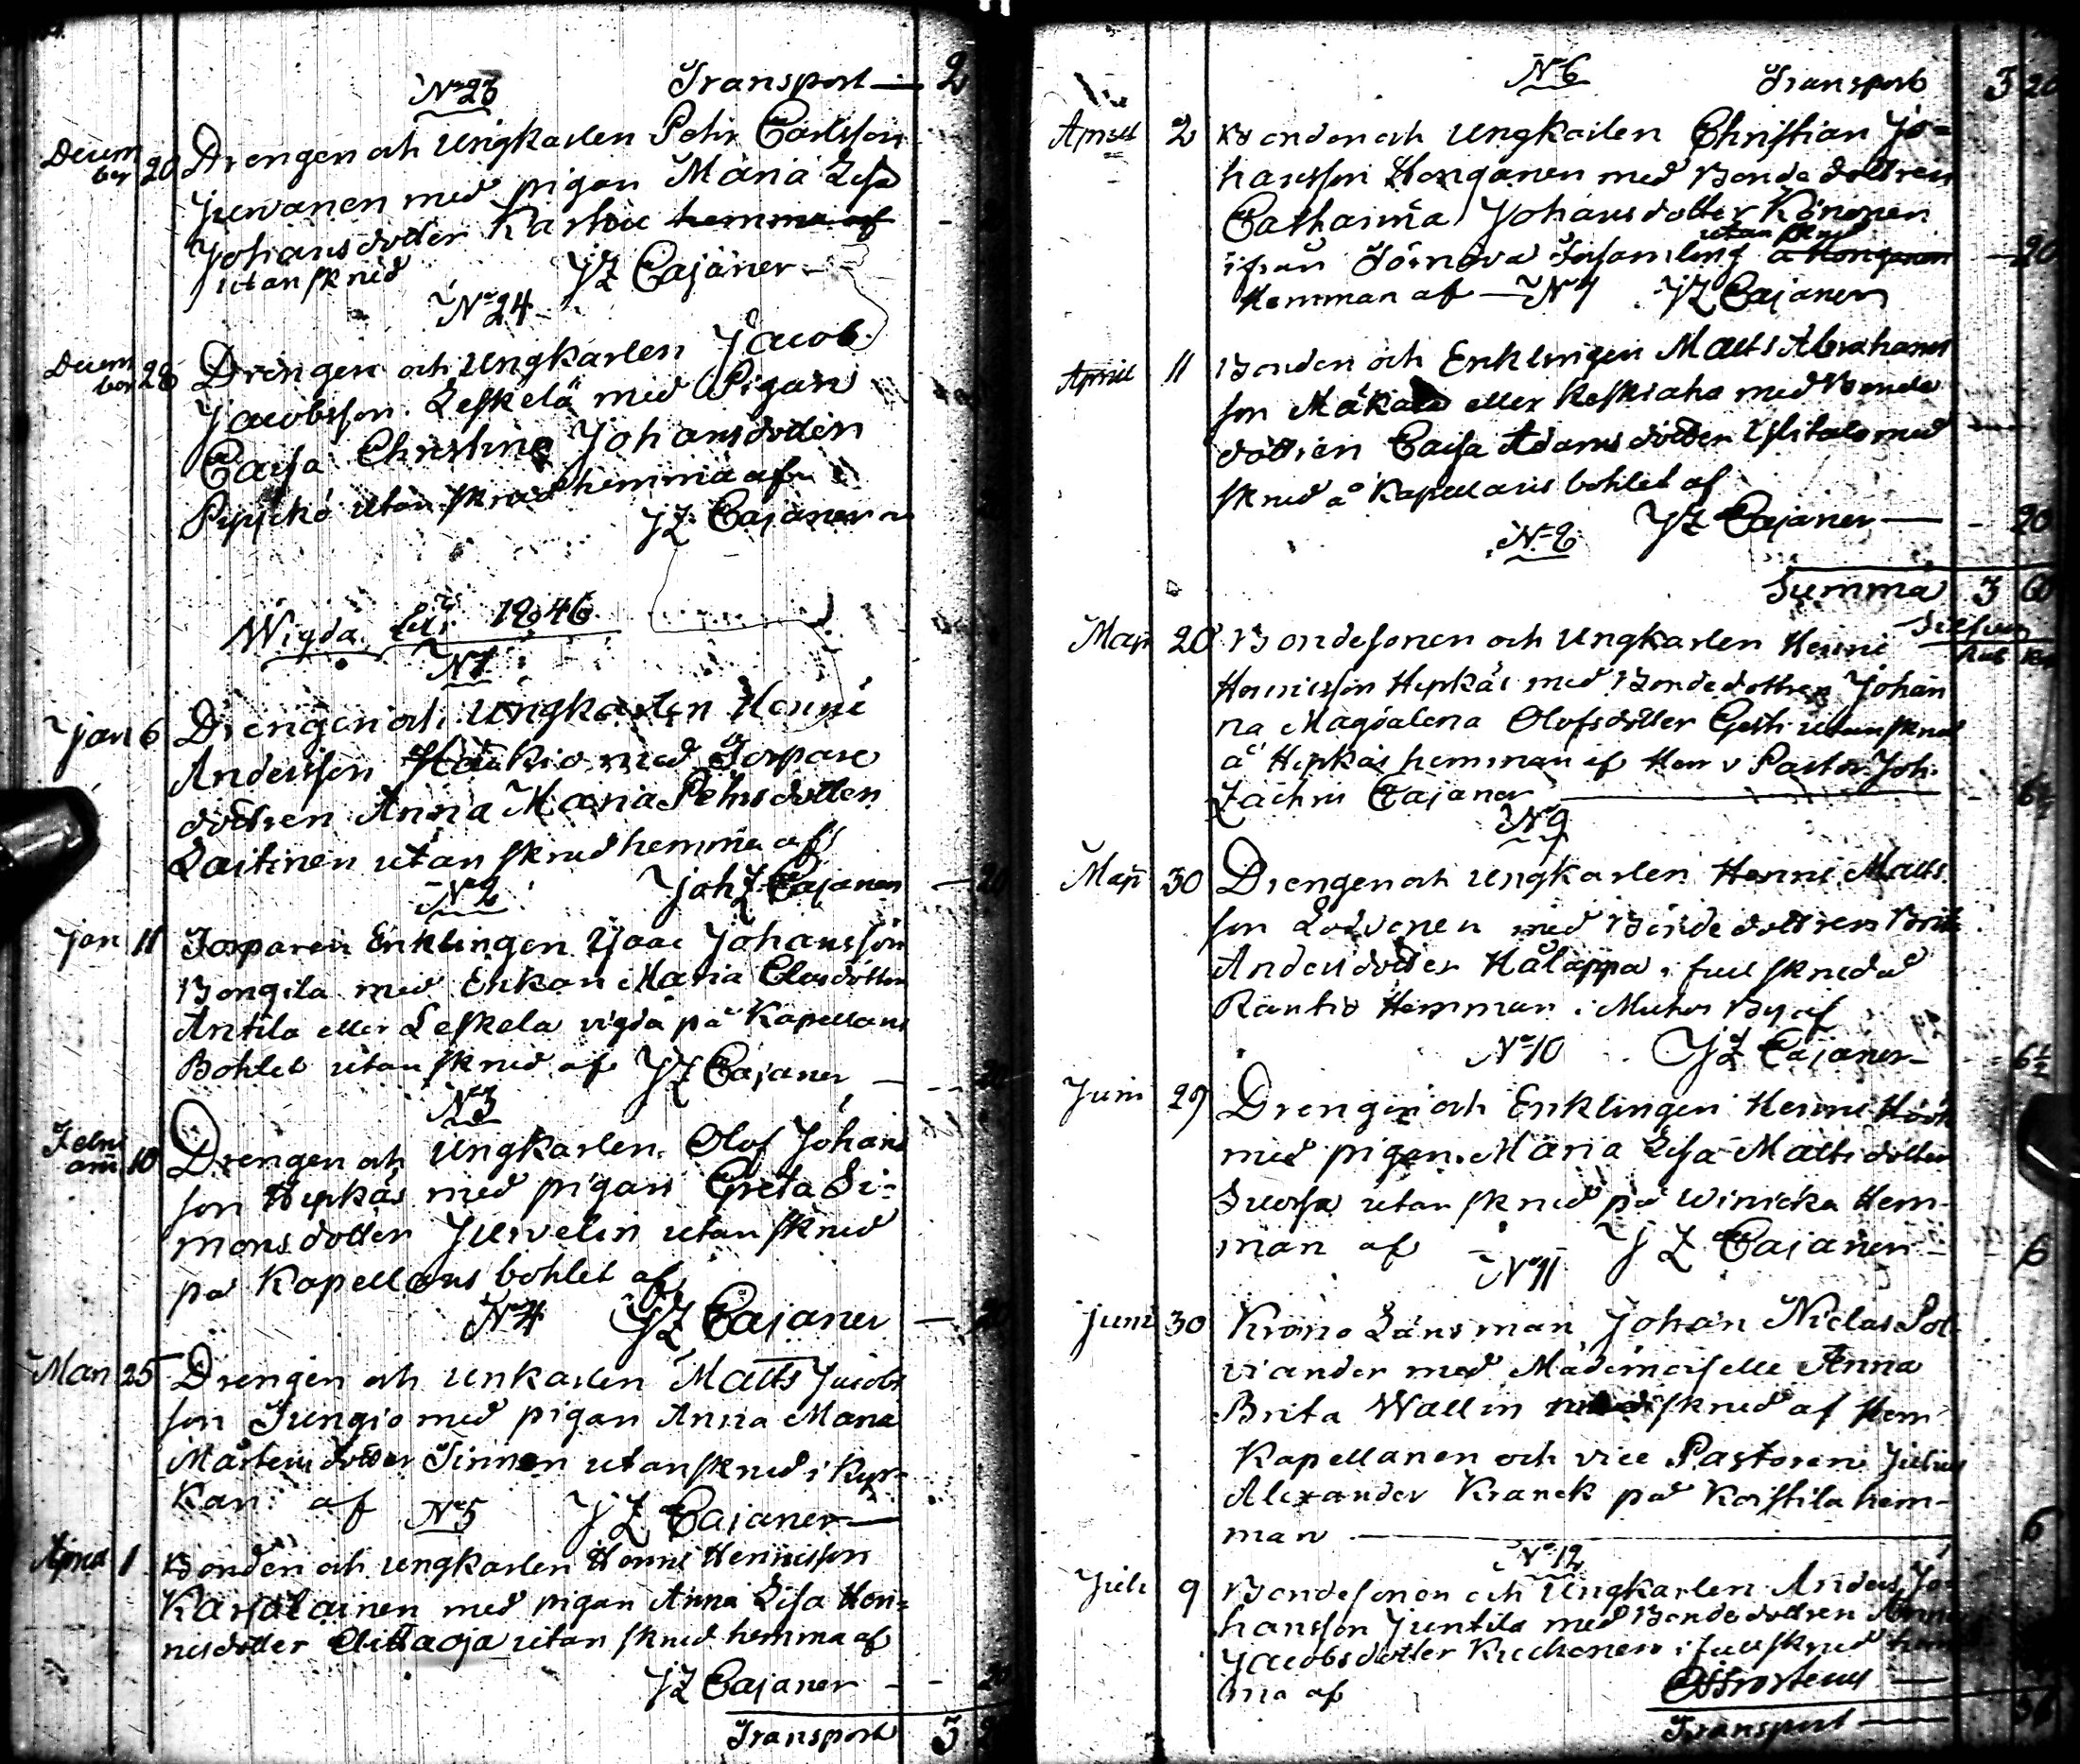 Transport — 2
No 23
Decem
ber 20 Drengen och Ungkarlen Petr Carlsson
Juvanen med pigan Maria Lisa
Johansdotter Karhu hemma af
utan skrud
JZ Cajaner
No 24
Decem
ber 28 Drengen och Ungkarlen Jacob
Jacobsson Leskelä med Pigan
Caisa Christina Johansdotter
Pyyckö utan skrud hemma af
JZ Cajaner
Wigda år 1846
N1
Jan 6 Drengen och Ungkarlen Henric
Andersson Haukio med Torpare
dottren Anna Maria Pehrsdotter
Laitinen utan skrud hemma af
Joh Z Cajaner — 20
No 2
Jan 11 Torparen Enklingen Isaac Johansson
Bongila med Enkan Maria Clasdotter
Antila eller Leskela vigda på Kapellans
Bohlet utan skrud af JZ Cajaner — 20
No 3
Febru
arii 10 Drengen och Ungkarlen Olof Johans
son Hepkäs med pigan Greta Si-
monsdotter Juvelin utan skrud
på Kapellans bohlet af
No 4 JZ Cajaner — 20
Mars 25 Drengen och Unkarlen Matts Jacobs
son Jungio med pigan Anna Maria
Mårtensdotter Tinnen utan skrud i Kyr-
kan af JZ Cajaner —
No 5
April 1 Bonden och Ungkarlen Henric Henricsson
Karjalainen med pigan Anna Lisa Hen-
ricsdotter Alittaoja utan skrud hemma af
JZ Cajaner - - 20
Transport 3
No 6 Transport 3 20
April 2 Bonden och Ungkarlen Christian Jo-
hansson Honganen med Bonde dottren
Catharina Johansdotter Könönen
utan skrud
ifrån Församling å Honganen — 20
Hemman af — No 7 JZ Cajaner
April 11 Bonden och Enklingen Matts Abrahams
son Mäkälä eller Keskiaho med Bonde
dottren Caisa Adamsdotter Ylitalo med
skrud å Kapellans bohlet af
JZ Cajaner — - 20
No 8
Summa 3 60
Silfver
Rub Kop
Maji 20 Bondesonen och Ungkarlen Henric
Henricsson Hepkäs med Bondedottren Johan
na Magdalena Olofsdotter Gesti utan skrud
å Hepkäs hemman af Herr v Pastor Joh.
Zachris Cajaner — 6½
No 9
Maji 30 Drengen och Ungkarlen Henric Matts
son Lodvonen med Bondedottren Brita
Andersdotter Hålappa i full skrud å
Rantio Hemman i Muhos By af
No 10 JZ Cajaner - 6½
Juni 29 Drengen och Enklingen Henric Höök
med pigan Maria Lisa Mattsdotter
Suorsa utan skrud på Winicka Hem-
man af JZ Cajaner — 6
No 11
Juni 30 Krono Länsman Johan Niclas Pol-
viander med Mademoiselle Anna
Brita Wallin skrud af Herr
Kapellanen och vice Pastoren Julius
Alexander Kranck på Koistila hem-
man — 6
No 12
Juli 9 Bondesonen och Ungkarlen Anders Jo-
hansson Juntila med Bondedottren Anna
Jacobsdotter Kuchonen i full skrud hem
ma af Frosterus —
Transport —